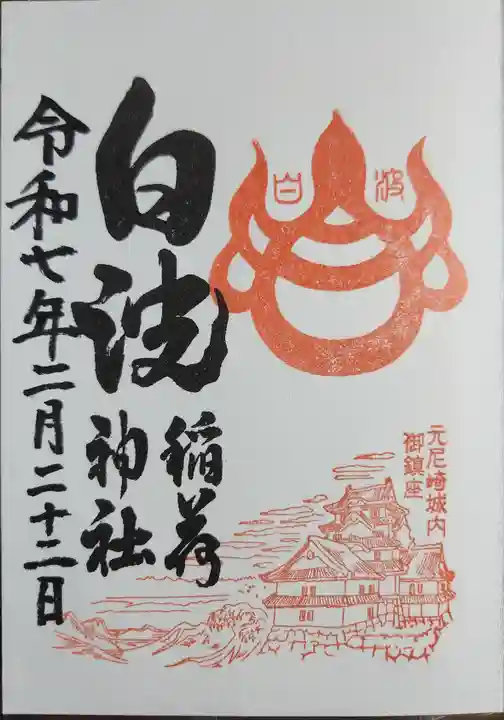 白波
元尼崎城内
御鎮座
白波
稲荷
神社
令和七年二月二十二日